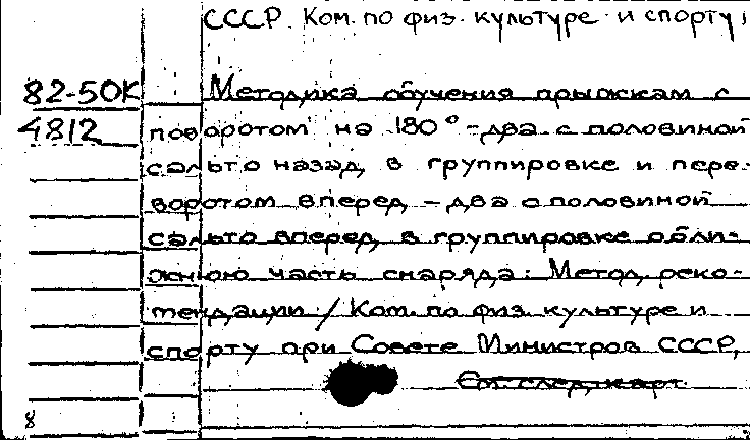 СССР. Ком. по физ. культуре и спорту
82-50К Методика обучения прыжкам с
4812 поворотом на 180° - два с половиной
сальто назад в группировке и пере-
воротом вперед - два с половиной
сальто вперед в группировке о бли-
жнюю часть снаряда: Метод. реко-
мендации / Ком. по физ. культуре и
спорту при Совете Министров СССР,
См. след. карт.
8